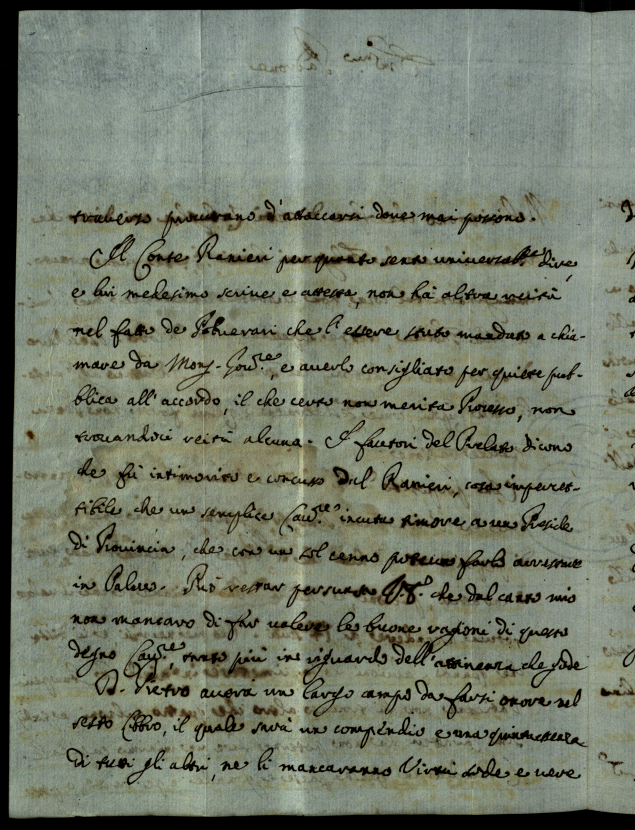 procurano d'attaccarsi dove mai possono.
Il Conte Ranieri per quanto sento universalm.te dire,
e lui medesimo scrive e attesta, non hà altra reità
nel fatto de che l'essere stato mandato a chia-
mare da Mons. Gov.re, e averlo consigliato per quiete pub-
blica all'accordo, il che certo non merita Processo, non
trovandoci reità alcuna. I fautori del Prelato dicono
che fù intimorito e concusso dal Ranieri, cosa impercet-
tibile che un semplice Cav.re incuta timore a un Preside
di Provincia, che con un sol cenno poteva farlo arrestare
in Palazzo. Può restar persuasa che dal canto mio
non mancarò di far valere le buone ragioni di questo
degno Cav.re, tanto più in riguardo dell'attinenza che gode
D. Pietro averà un largo campo da farsi onore nel
sesto Libro, il quale sarà un compendio e una quintessenza
di tutti gli altri, ne li mancaranno Virtù sode e vere